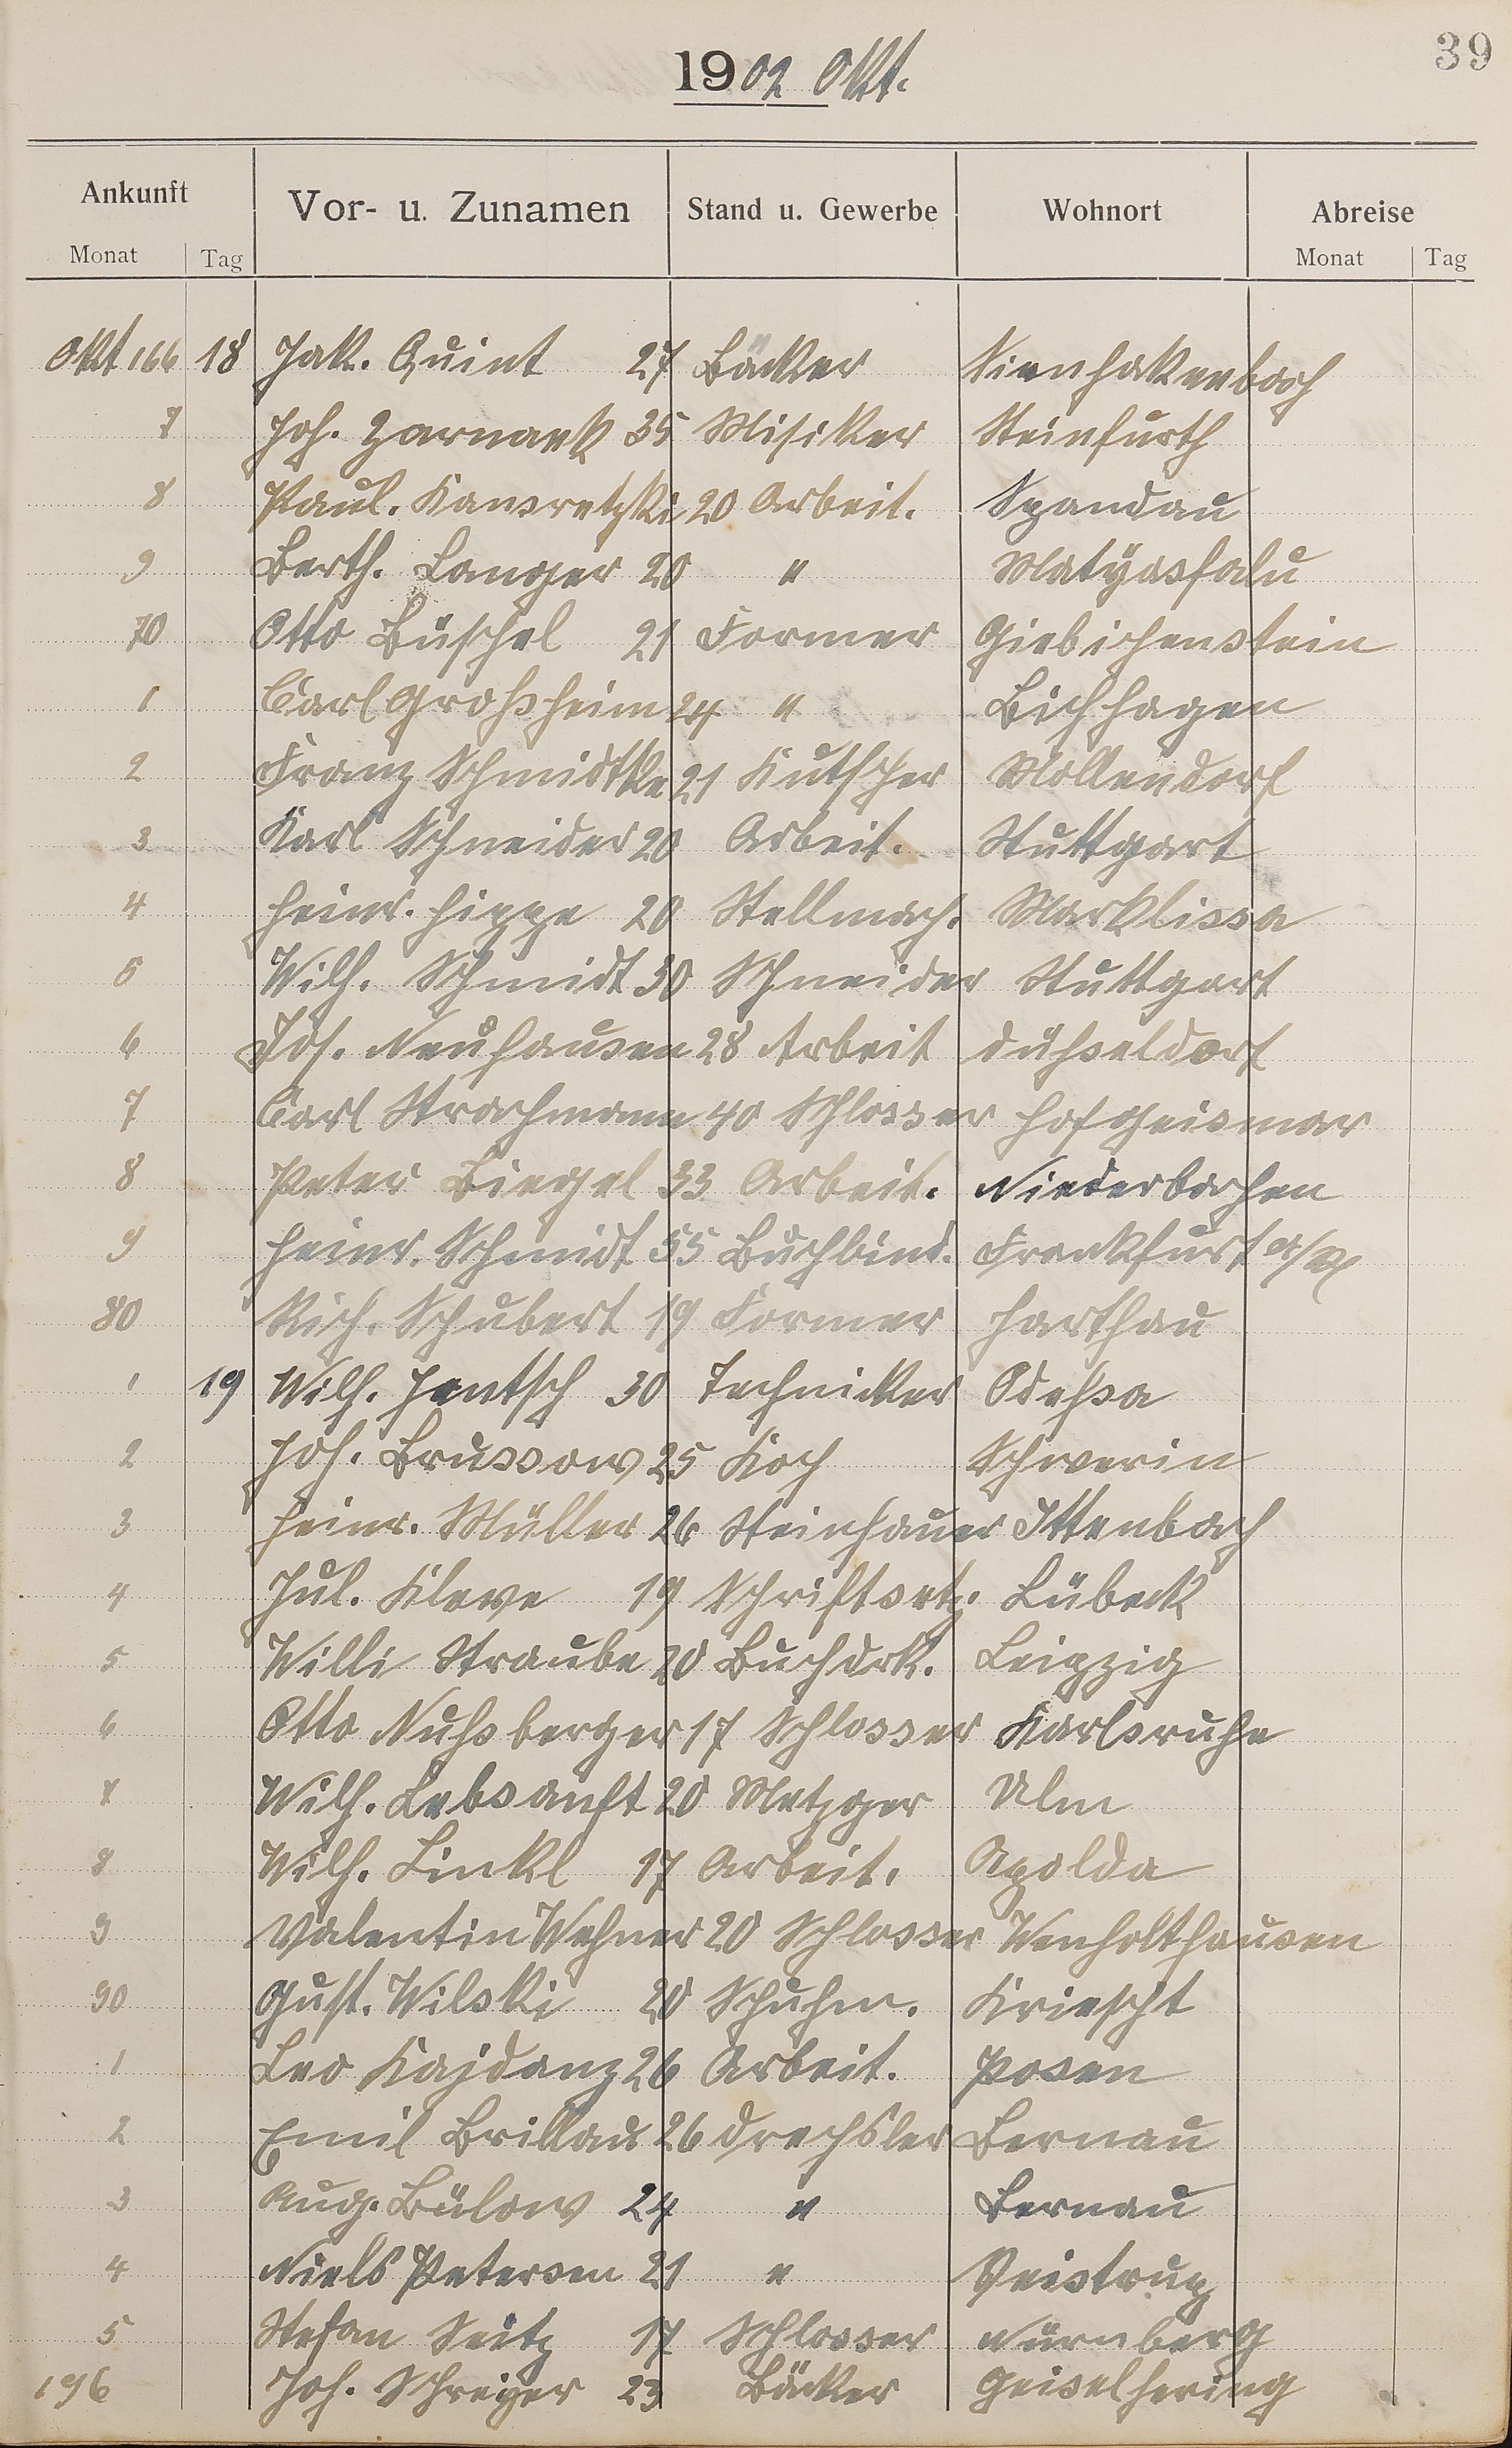 39
1902 Okt.
Ankunft Vor- u. Zunamen Stand u. Gewerbe Wohnort Abreise
Monat Tag Monat Tag
Okt 166 18 Jak. Quint 27 Bäcker Nienhakenboch
7 Joh. Zarnack 35 Misiker Steinfurth
8 Paul. Kansretzki 20 Arbeit. Spandau
9 Berth. Langer 20 " Matyasfalu
70 Otto Büschel 21 Former Giebichenstein
1 Carl Großheim 24 " Bichhagen
2 Franz Schmidtke 21 Kutscher Mollendorf
3 Karl Schneider 20 Arbeit. Stuttgart
4 Heinr. Hippe 20 Stellmach. Marklissa
5 Wilh. Schmidt 30 Schneider Stuttgart
6 Jos. Neuhausen 28 Arbeit Düsseldorf
7 Carl Strachmann 40 Schlosser Hofgeismar
8 Peter Biegel 33 Arbeit. Niederbochen
9 Heinr. Schmidt 55 Buchbind. Frankfurt a/M
80 Rich. Schubert 19 Former Harthau
1 19 Wilh. Jentsch 30 Technicker Odeßa
2 Joh. Brussow 25 Koch Schwerin
3 Heinr. Müller 26 Steinhauer Ittenbach
4 Jul. Kleve 19 Schriftsetz. Lübeck
5 Willi Straube 20 Buchdrk. Leipzig
6 Otto Nußberger 17 Schlosser Karlsruhe
7 Wilh. Lebsanft 20 Metzger Ulm
8 Wilh. Linkl 17 Arbeit. Apolda
9 Valentin Wehner 20 Schlosser Wenholthausen
90 Gust. Wilski 20 Schuhm. Kriescht
1 Leo Kajdanz 26 Arbeit. Posen
2 Emil Brillaus 26 Drechsler Bernau
3 Aug. Bülow 24 " Bernau
4 Niels Petersen 21 " Veistrup
5 Stefan Seitz 17 Schlosser Nürnberg
196 Joh. Schreyer 23 Bäcker Geiselhering